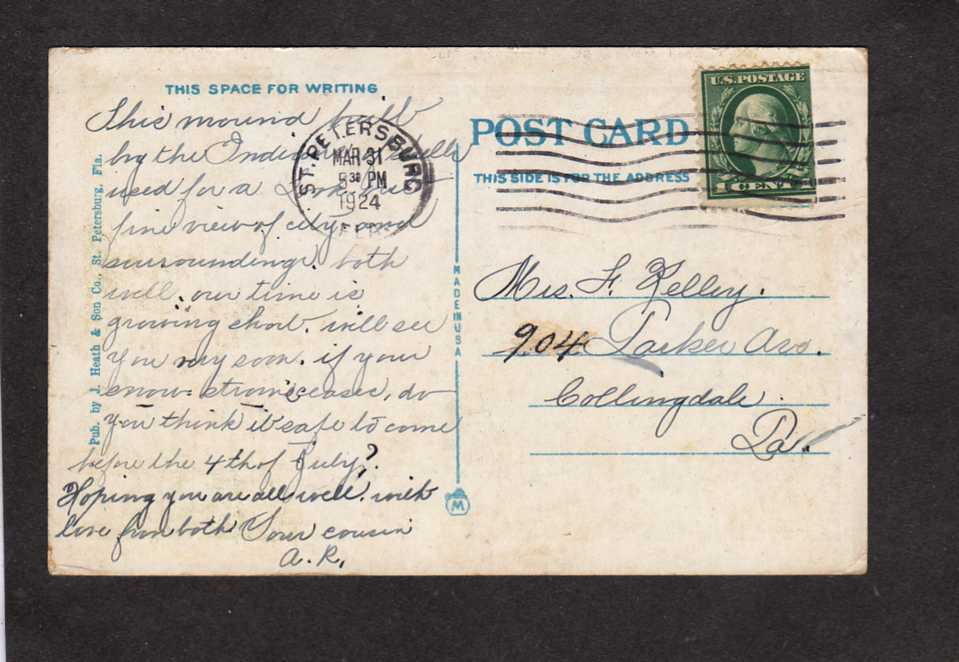 THIS SPACE FOR WRITING
This mound built
by the Indians
used for a
fine view of city and
surroundings. both
well. our time is
growing short. will see
you soon. if your
snow storms cease, do
you think it safe to come
before the 4th of July?
Hoping you are all well. with
love from both Your cousin
A. R.
Pub. by J. Heath & Son Co., St. Petersburg, Fla.
ST. PETERSBURG
MAR 31
5 30 PM
1924
MADE IN USA
M
POST CARD
THIS SIDE IS FOR THE ADDRESS
U.S. POSTAGE
1 CENT
Mrs. F. Kelley.
904 Parker Ave.
Collingdale
Pa.